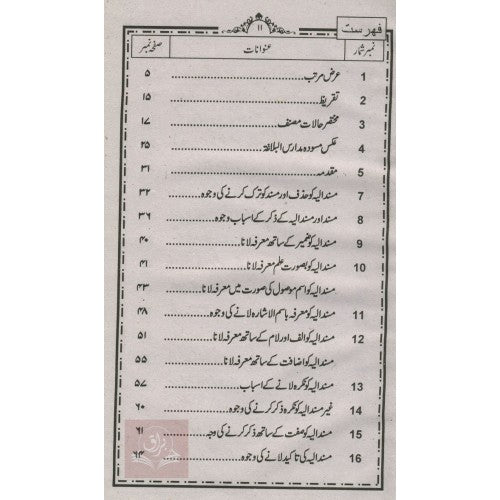 فہرست
۱۱
نمبر شمار عنوانات صفحہ نمبر
1 عرض مرتب ۵
2 تقریظ ۱۵
3 مختصر حالات مصنف ۱۷
4 عکس مسودہ مدارس البلاغۃ ۲۵
5 مقدمہ ۳۱
7 مسند الیہ کو حذف اور مسند کو ترک کرنے کی وجوہ ۳۲
8 مسند اور مسند الیہ کے ذکر کے اسباب وجوہ ۳۶
9 مسند الیہ کو ضمیر کے ساتھ معرفہ لانا ۴۰
10 مسند الیہ کو بصورت علم معرفہ لانا ۴۱
مسند الیہ کو اسم موصول کی صورت میں معرفہ لانا ۴۳
11 مسند الیہ کو معرفہ باسم الاشارہ لانے کی وجوہ ۴۸
12 مسند الیہ کو الف اور لام کے ساتھ معرفہ لانا ۵۱
مسند الیہ کو اضافت کے ساتھ معرفہ لانا ۵۵
13 مسند الیہ کو نکرہ لانے کے اسباب ۵۷
14 غیر مسند الیہ کو نکرہ ذکر کرنے کی وجوہ ۶۰
15 مسند الیہ کو صفت کے ساتھ ذکر کرنے کی وجہ ۶۱
16 مسند الیہ کی تاکید لانے کی وجوہ ۶۴